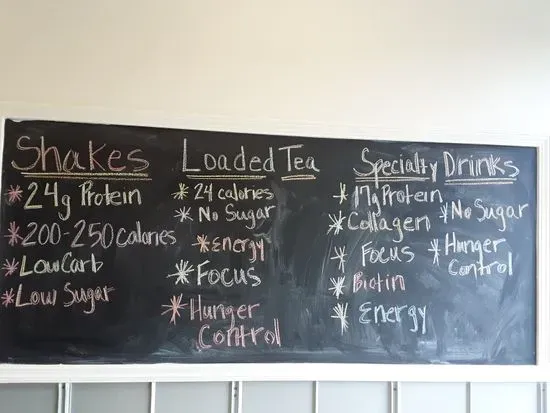 Shakes
* 24g Protein
* 200-250 calories
* Low Carb
* Low Sugar
Loaded Tea
* 24 calories
* No Sugar
* Energy
* Focus
* Hunger
Control
Specialty Drinks
* 17g Protein
* Collagen
* Focus
* Biotin
* Energy
* No Sugar
* Hunger
Control